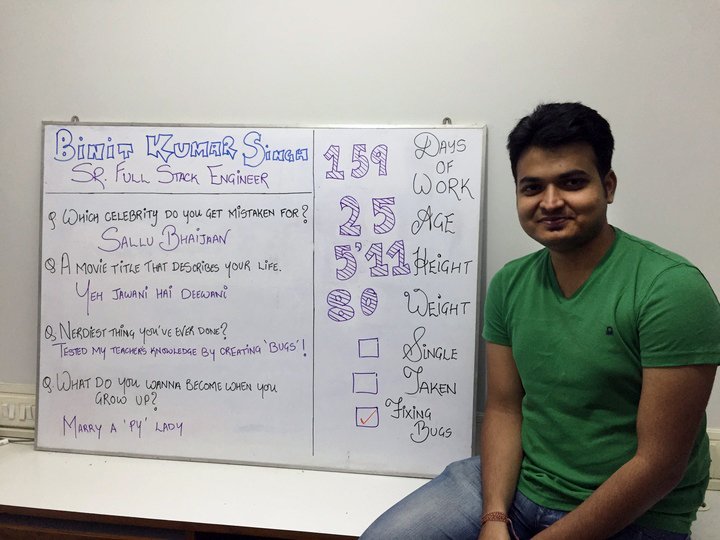 BINIT KUMAR SINGH
SR. FULL STACK ENGINEER
Q WHICH CELEBRITY DO YOU GET MISTAKEN FOR?
SALLU BHAIJAAN
Q A MOVIE TITLE THAT DESCRIBES YOUR LIFE.
YEH JAWANI HAI DEEWANI
Q. NERDIEST THING YOU'VE EVER DONE?
TESTED MY TEACHER'S KNOWLEDGE BY CREATING 'BUGS'!
Q. WHAT DO YOU WANNA BECOME WHEN YOU
GROW UP?
MARRY A 'PY' LADY
159 DAYS
OF
WORK
25 AGE
5'11 HEIGHT
80 WEIGHT
SINGLE
TAKEN
FIXING
BUGS